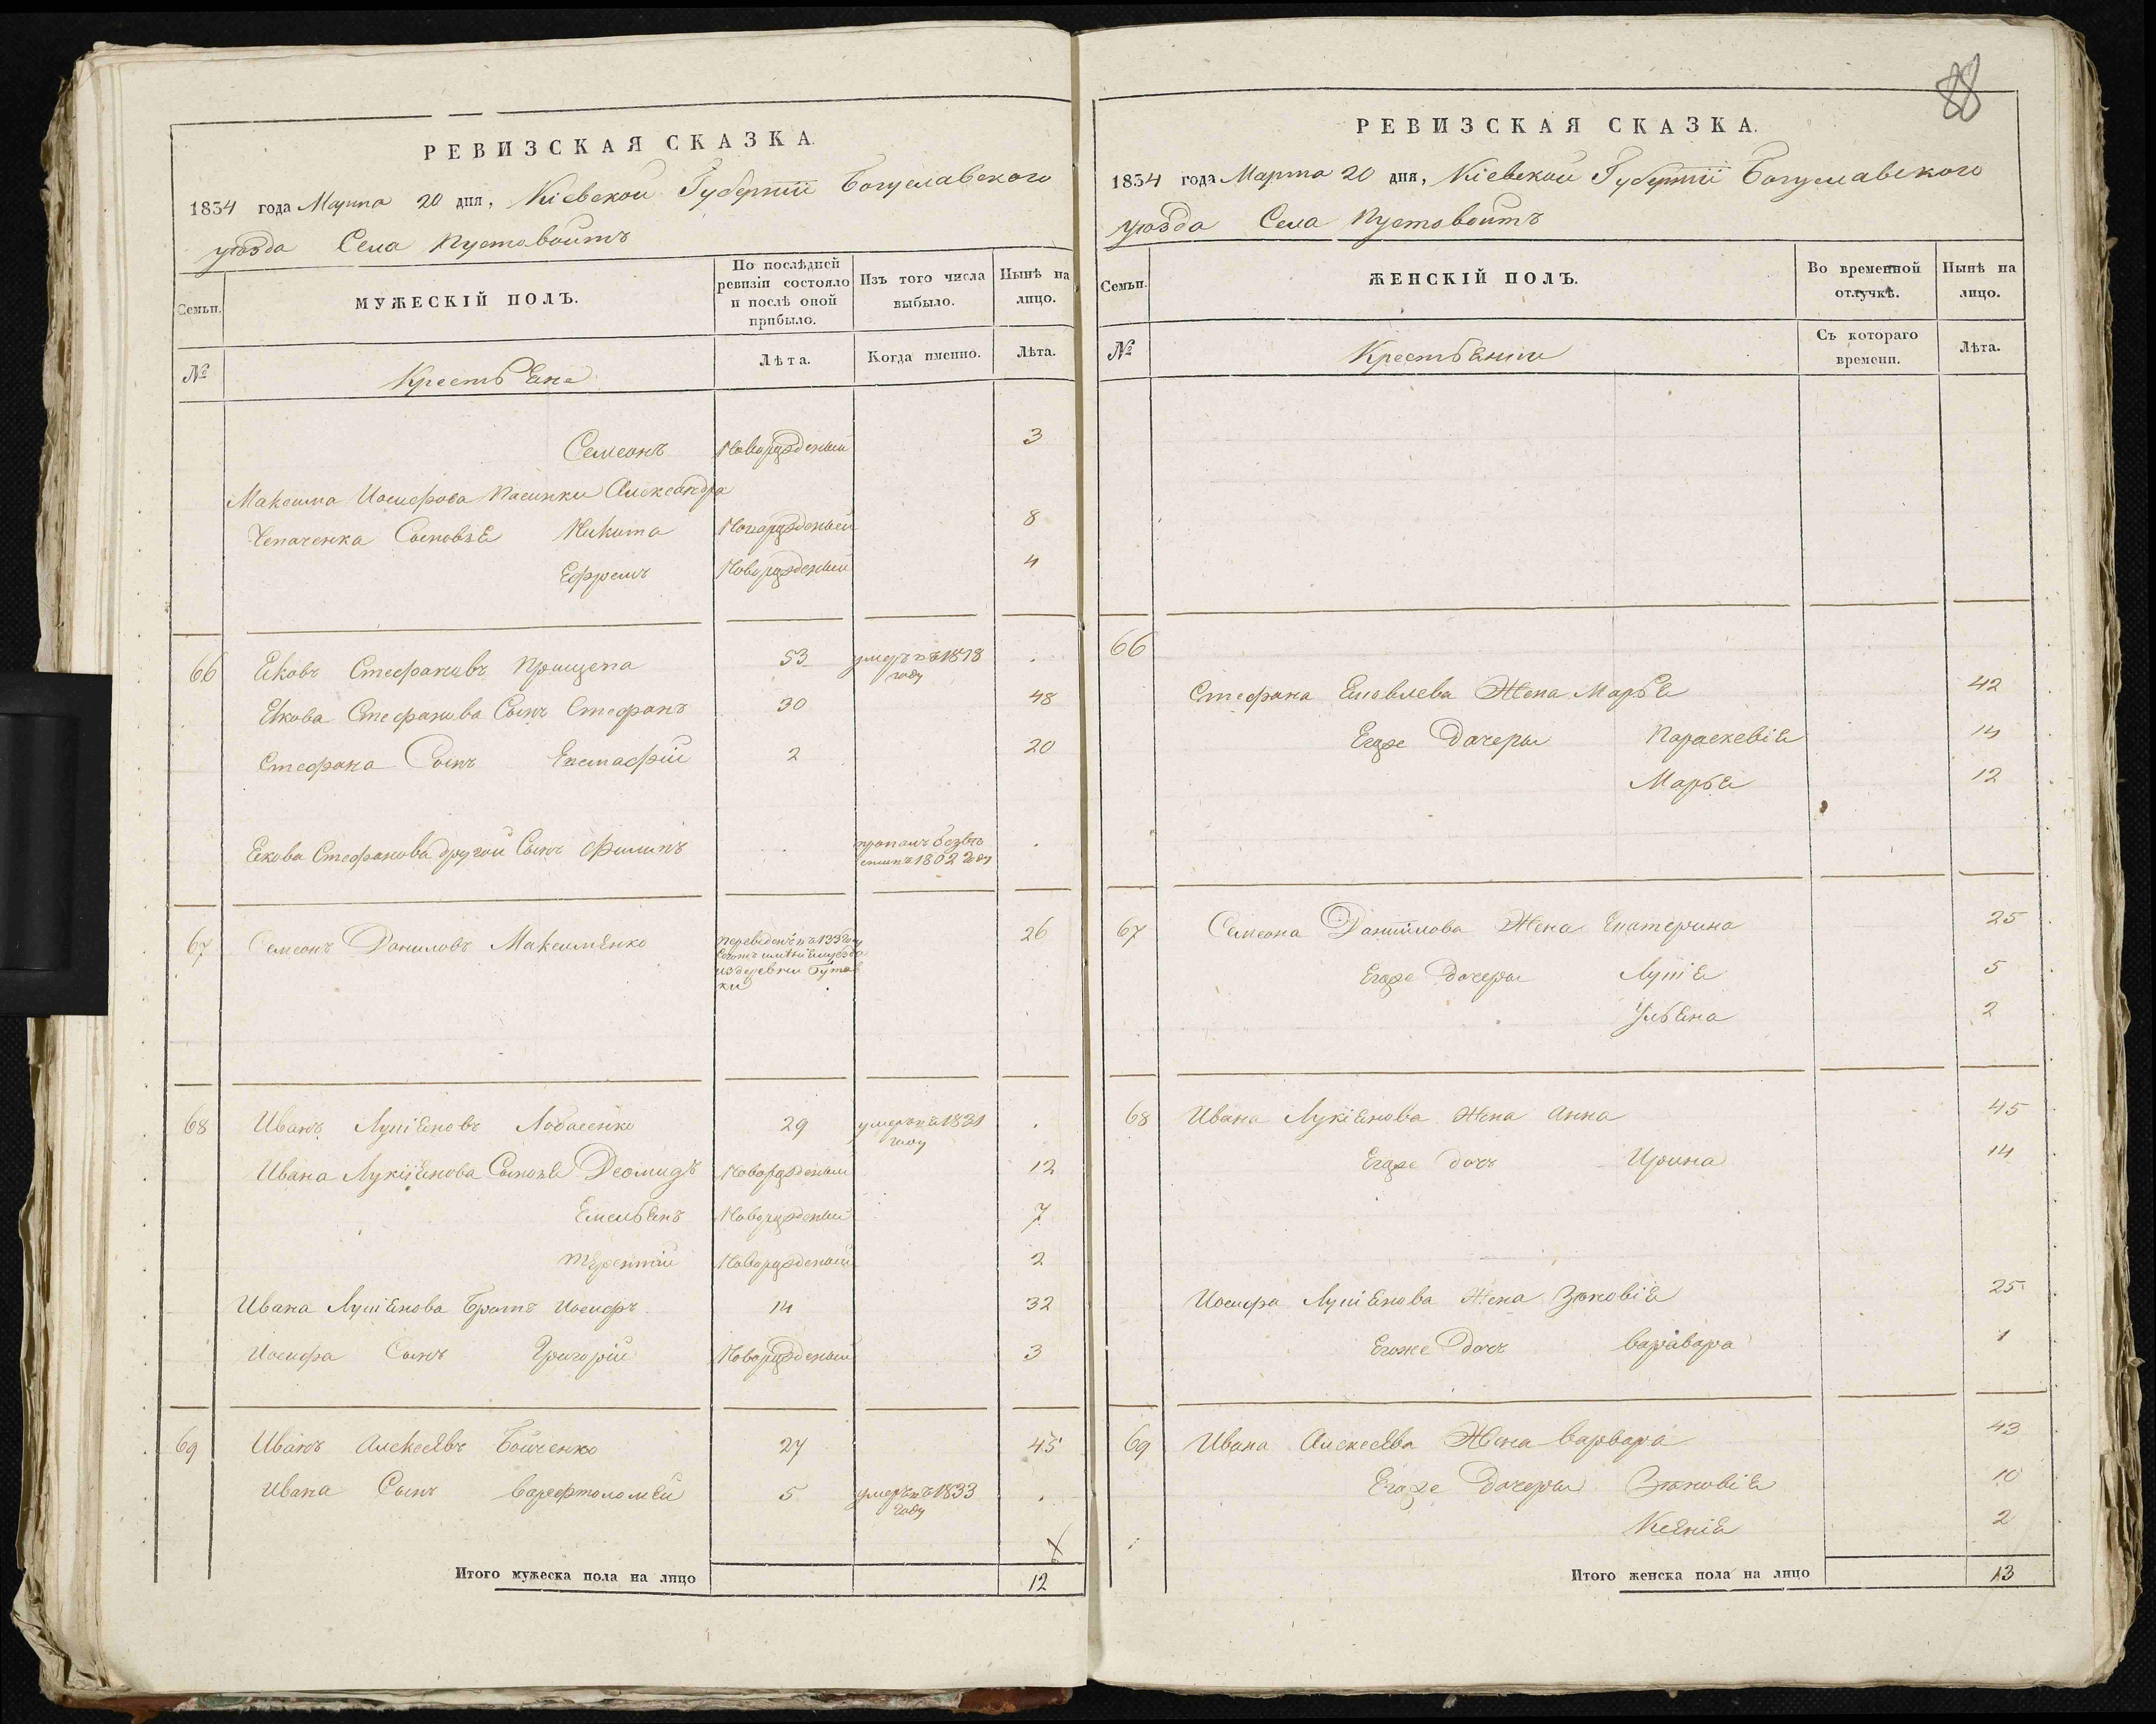 88
РЕВИЗСКАЯ СКАЗКА.
1834 года Марта 20 дня, Кіевской Губерніи Богуславского
уѣзда Села Пустовойтъ
Семьи. МУЖЕСКІЙ ПОЛЪ. По послѣдней ревизіи состояло и послѣ оной прибыло. Изъ того числа выбыло. Нынѣ на лицо.
№ Крестьяне Лѣта. Когда именно. Лѣта.
Семеонъ Новорожденый 3
Максима Иосифова Пасинки Александра
Сыновья Никита Новорожденый 8
Ефремъ Новорожденый 4
66 Яковъ Стефановъ Прищепа 53 умеръ въ 1818 году .
Якова Стефанова Сынъ Стефанъ 30 48
Стефана Сынъ Евстафій 2 20
Якова Стефанова другой Сынъ Филипъ . . пропалъ безвѣстно въ 1802 году .
67 Семеонъ Даниловъ Максименко Переведенъ въ из деревни 26
68 Иванъ Лукіяновъ Лобасенко 29 умеръ въ 1831 году .
Ивана Лукіянова Сыновья Деомидъ Новорожденый 12
Емельянъ Новорожденый 7
Терентій Новорожденый 2
Ивана Лукіянова Братъ Иосифъ 14 32
Иосифа Сынъ Григорій Новорожденый 3
69 Иванъ Алексеявъ Бойченко 27 45
Ивана Сынъ Варфтоломей 5 умеръ въ 1833 году .
Итого мужеска пола на лицо 12
РЕВИЗСКАЯ СКАЗКА.
1834 года Марта 20 дня, Кіевской Губерніи Богуславского
уѣзда Села Пустовойтъ
Семьи. ЖЕНСКІЙ ПОЛЪ. Во временной отлучкѣ. Нынѣ на лицо.
№ Крестьянки Съ котораго времени. Лѣта.
66
Стефана Яковлева Жена Марья 42
Егоже Дочеры Параскевія 14
Марья 12
67 Семеона Данилова Жена Екатерина 25
Егоже Дочеры Лукія 5
Ульяна 2
68 Ивана Лукіянова Жена Анна 45
Егоже Дочъ Ирина 14
Иосифа Лукіянова Жена Зѣновія 25
Егоже Дочъ Варавара 1
69 Ивана Алексеява Жена Варвара 43
Егоже Дочеры Зѣновія 10
Ксенія 2
Итого женска пола на лицо 13